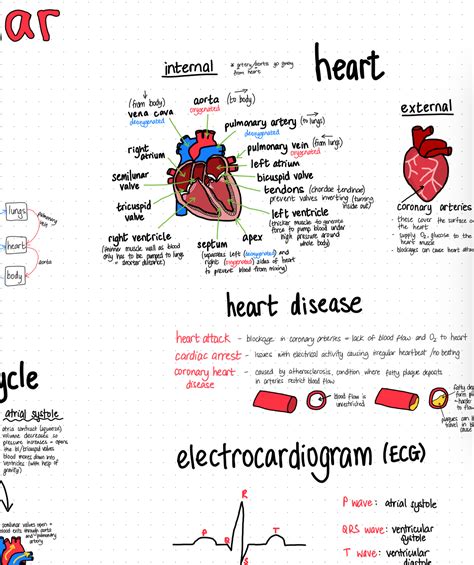 ar
heart
internal
* artery/aorta go away
from heart
external
(from body)
vena cava
deoxygenated
aorta (to body)
oxygenated
pulmonary artery (to lungs)
deoxygenated
pulmonary vein (from lungs)
oxygenated
right
atrium
left atrium
bicuspid valve
semilunar
valve
tendons (chordae tendinae)
prevent valves inverting (turning
inside out)
tricuspid
valve
left ventricle
(thicker muscle to generate
force to pump blood under
high pressure around
whole body)
right ventricle
(thinner muscle wall as blood
only has to be pumped to lungs
= shorter distance)
septum
(separates left (deoxygenated) and
right (oxygenated) sides of heart
to prevent blood from mixing)
apex
coronary arteries
- these cover the surface of
the heart
- supply O₂, glucose to the
heart muscle
- blockages can cause heart
lungs
pulmonary
vein
heart
aorta
body
heart disease
heart attack - blockage in coronary arteries = lack of blood flow and O₂ to heart
cardiac arrest - issues with electrical activity causing irregular heartbeat / no beating
coronary heart
disease
- caused by atherosclerosis, condition where fatty plaque deposits
in arteries restrict blood flow
blood flow is
unrestricted
fatty
form
harder
to
plaques can
ycle
atrial systole
atria contract (squeeze)
volume decreases so
pressure increases = opens
the bi/tricuspid valves
blood moves down into
ventricles (with help of
gravity)
semilunar valves open =
blood exits through aorta
and pulmonary
artery
electrocardiogram (ECG)
P
Q
R
S
T
P wave: atrial systole
QRS wave: ventricular
systole
T wave: ventricular
diastole